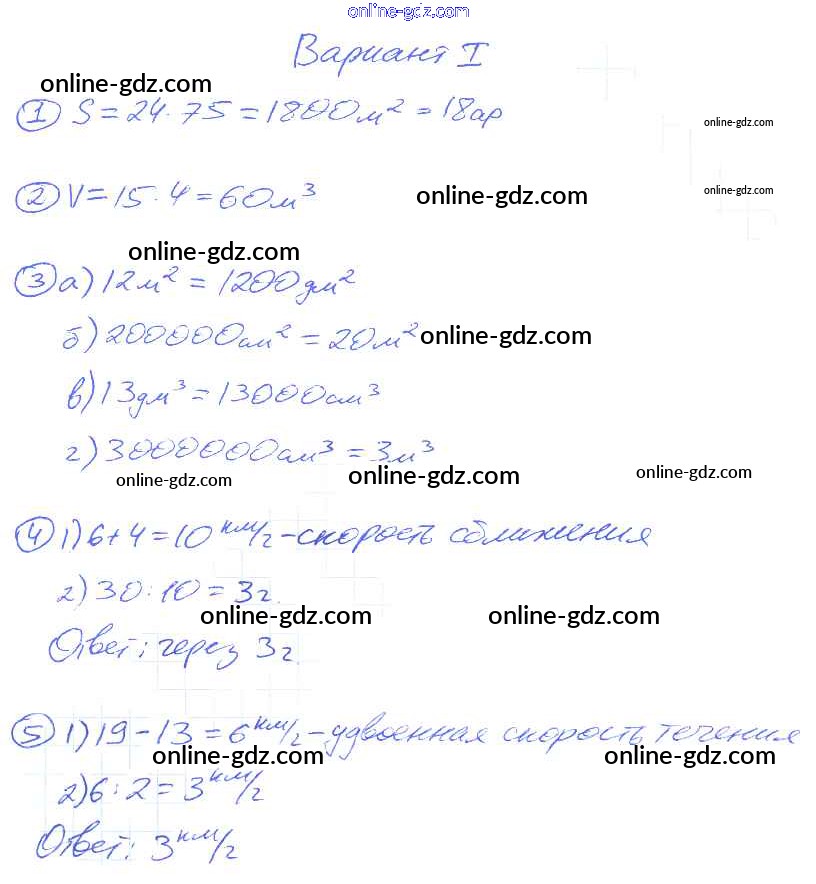 online-gdz.com
Вариант I
online-gdz.com
1 S = 24 · 75 = 1800 м² = 18 ар
online-gdz.com
2 V = 15 · 4 = 60 м³
online-gdz.com
online-gdz.com
online-gdz.com
3 а) 12 м² = 1200 дм²
б) 200000 см² = 20 м²
online-gdz.com
в) 13 дм³ = 13000 см³
г) 3000000 см³ = 3 м³
online-gdz.com
online-gdz.com
online-gdz.com
4 1) 6 + 4 = 10 км/ч - скорость сближения
2) 30 : 10 = 3 ч.
online-gdz.com
online-gdz.com
Ответ: через 3 ч.
5 1) 19 - 13 = 6 км/ч - удвоенная скорость течения
online-gdz.com
online-gdz.com
2) 6 : 2 = 3 км/ч
Ответ: 3 км/ч